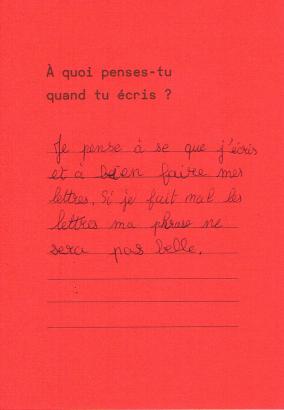 À quoi penses-tu
quand tu écris ?
Je pense à se que j'écris
et à bien faire mes
lettres. Si je fait mal les
lettres ma phrase ne
sera pas belle.